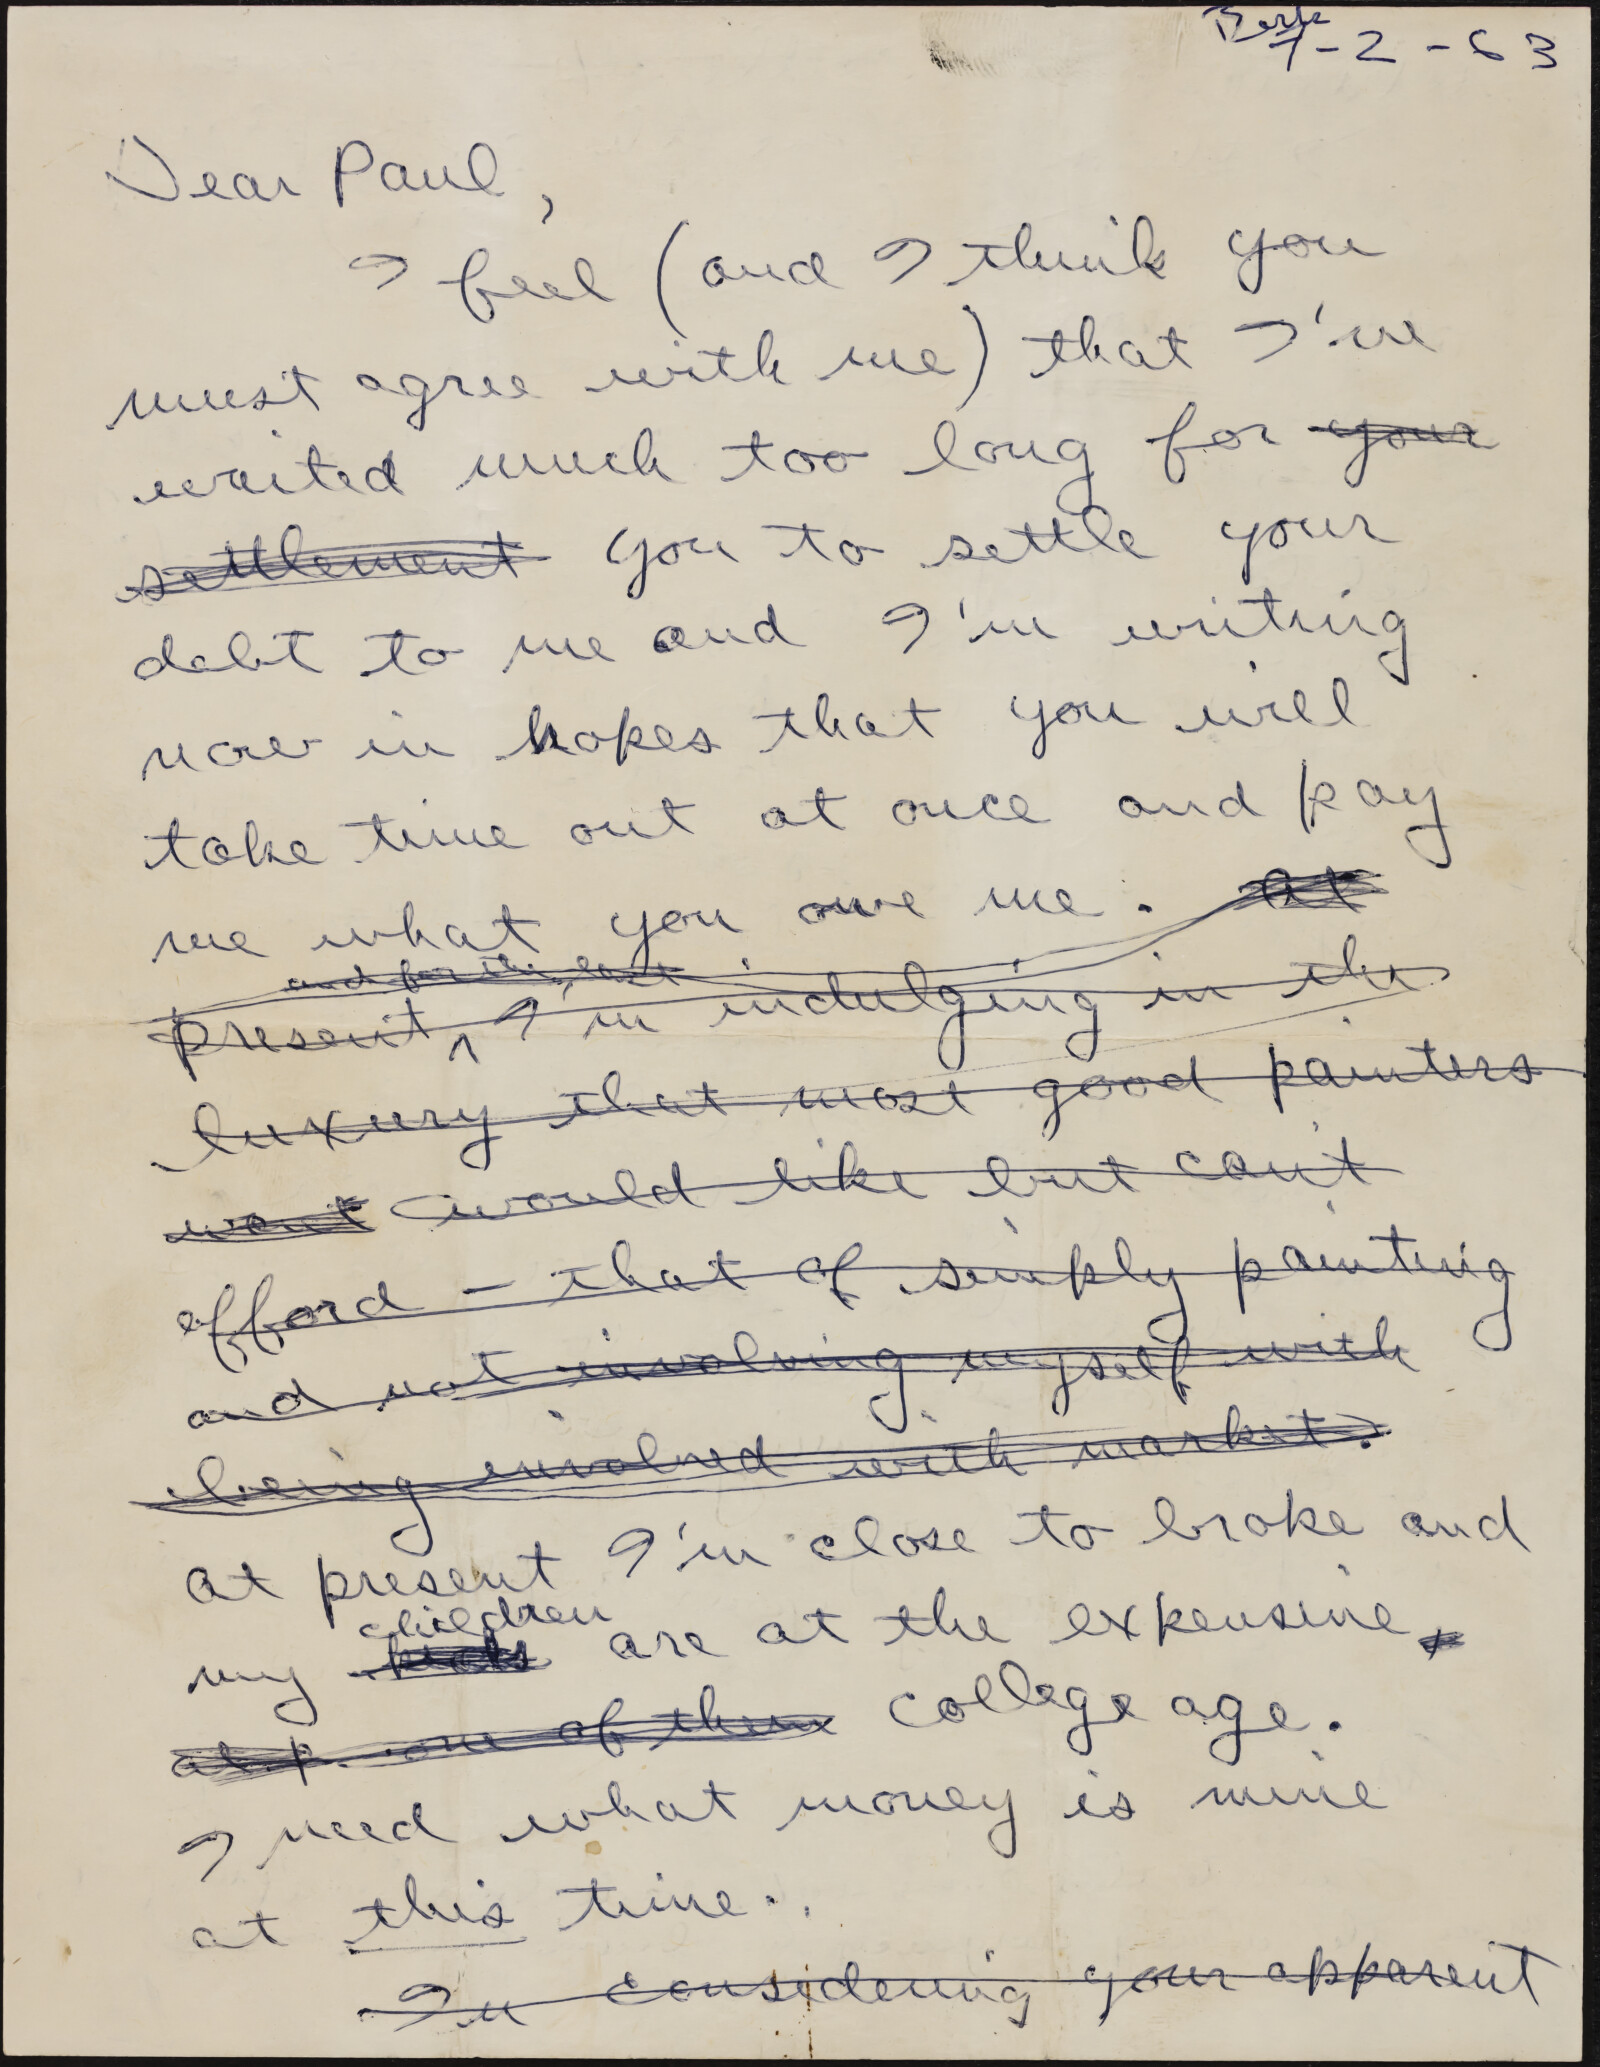 Berk
7-2-63
Dear Paul,
I feel (and I think you
must agree with me) that I've
waited much too long for your
settlement you to settle your
debt to me and I'm writing
now in hopes that you will
take time out at once and pay
me what you owe me. At
and for the last
present, I'm indulging in the
luxury that most good painters
want would like but can't
afford – that of simply painting
and not involving myself with
being involved with market.
At present I'm close to broke and
children
my kids are at the expensive
one of them college age.
I need what money is mine
at this time.
In considering your apparent